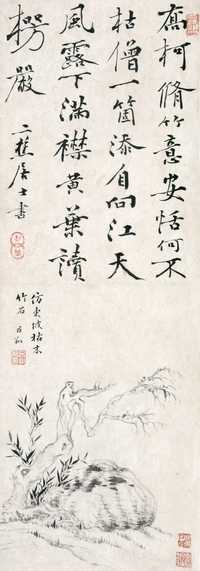 喬柯脩竹意安恬何不
枯僧一箇添自向江天
風露下滿襟黃葉讀
楞嚴 二樵居士書
仿東坡枯木
竹石